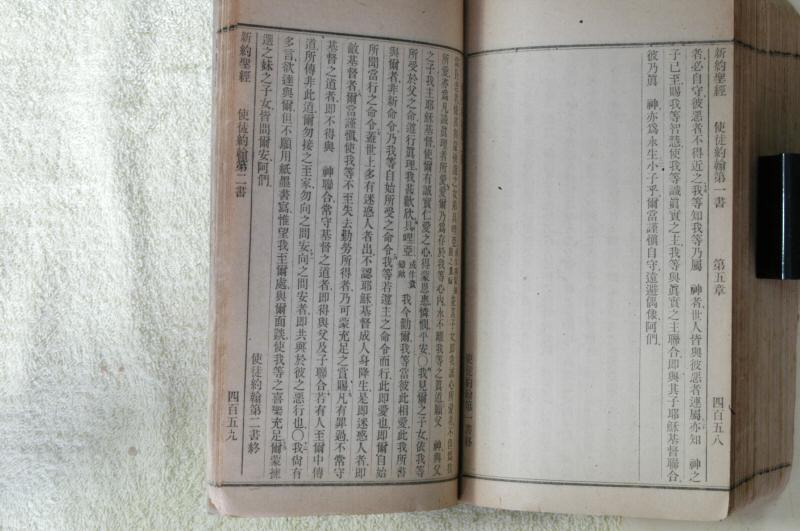 新約聖經 使徒約翰第一書 第五章 四百五八
者必自守彼惡者不得近之我等知我等乃屬 神者世人皆與彼惡者連屬亦知 神之
子已至賜我等智慧使我等識眞實之主我等與眞實之主聯合即與其子耶穌基督聯合
彼乃眞 神亦爲永生小子乎爾當謹愼自守遠避偶像阿們
使徒約翰第一書終
所愛亦當凡識眞理者所愛愛爾乃爲存於我等心內永不離我等之眞道願父 神與父
之子我主耶穌基督使爾有誠實仁愛之心得蒙恩惠憐憫平安〇我見爾之子女依我等
所受於父之命遵行眞理我甚歡欣 我今勸爾我等當彼此相愛此我所書
與爾者非新命令乃我等自始所受之命令我等若遵主之命令而行此即愛也即爾自始
所聞當行之命令蓋世上多有迷惑人者出不認耶穌基督成人身降生是即迷惑人者即
敵基督者爾當謹愼使我等不至失去勤勞所得者乃可蒙充足之賞賜凡有罪過不常守
基督之道者即不得與 神聯合常守基督之道者即得與父及子聯合若有人至爾中傳
道所傳非此道爾勿接之至家勿向之問安向之問安者即共與於彼之惡行也〇我尙有
多言欲達與爾但不願用紙墨書寫惟望我至爾處與爾面談使我等之喜樂充足爾蒙揀
選之妹之子女皆問爾安阿們 使徒約翰第二書終
新約聖經 使徒約翰第二書 四百五九